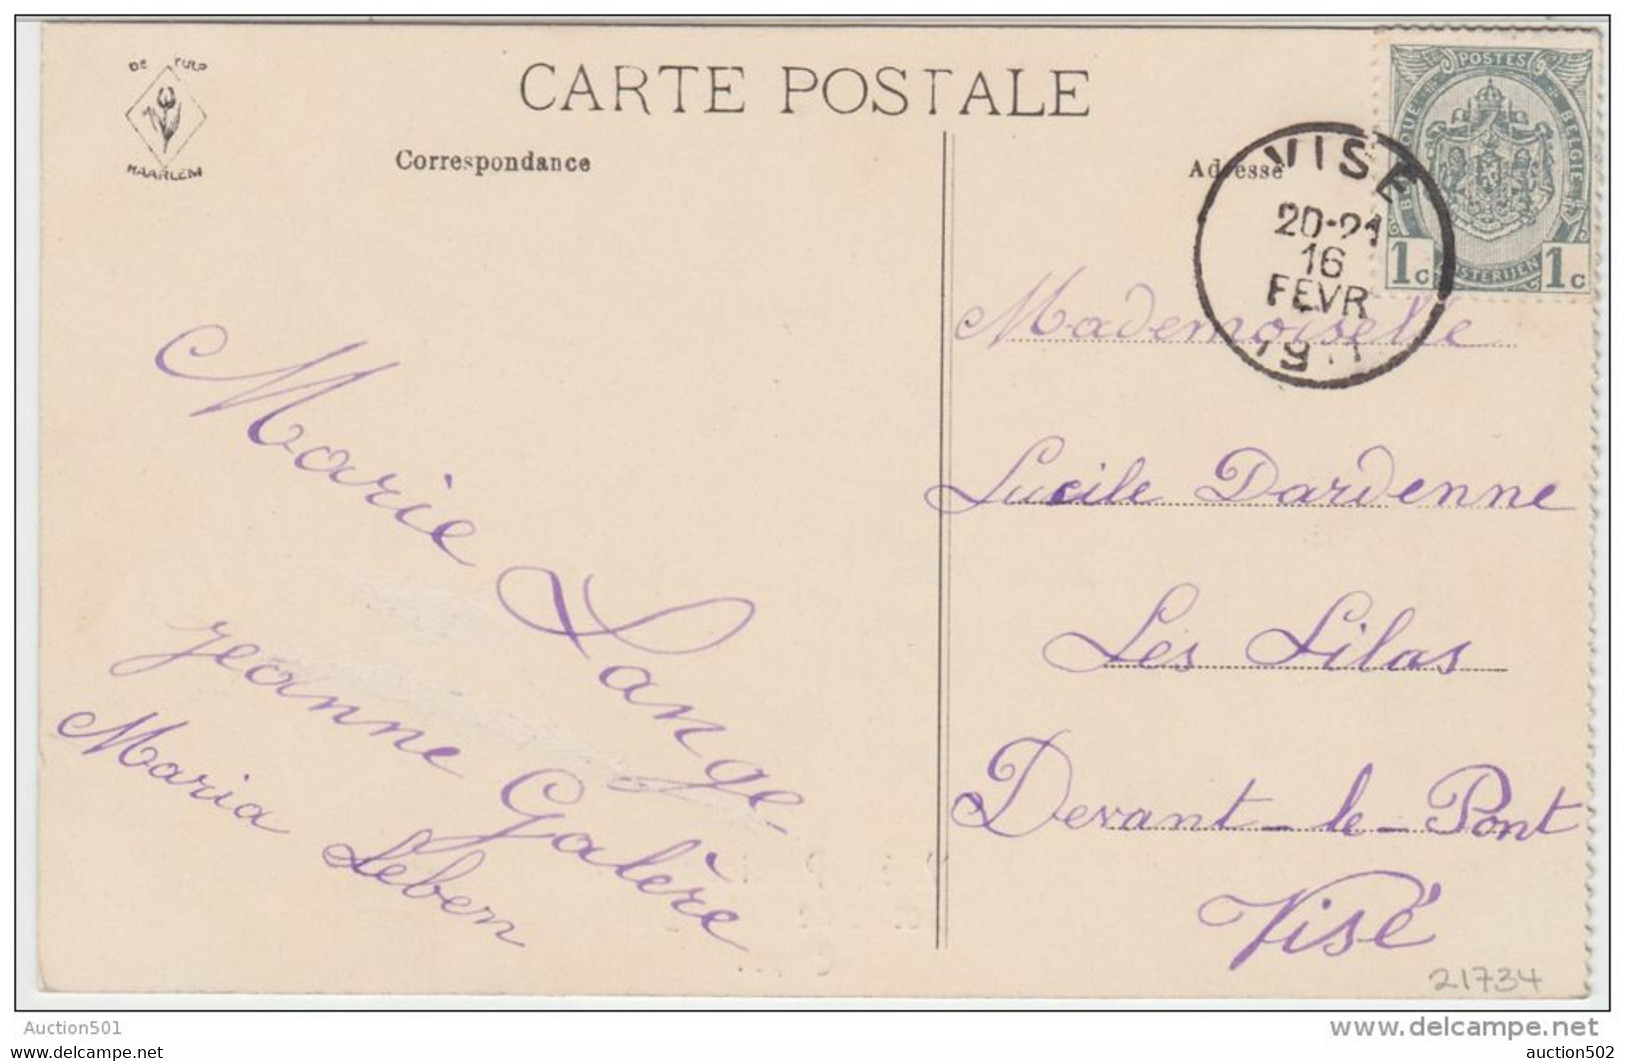 DE TULP
HAARLEM
CARTE POSTALE
Correspondance
Adresse
POSTES
BELGIQUE BELGIE
POSTERIJEN
1c 1c
VISÉ
20-21
16
FEVR
Mademoiselle
Lucile Dardenne
Les Lilas
Devant-le-Pont
Visé
Marie Lange-
Jeanne Galère
Maria Leben
21734
Auction501
auction501
www.delcampe.net
auction502